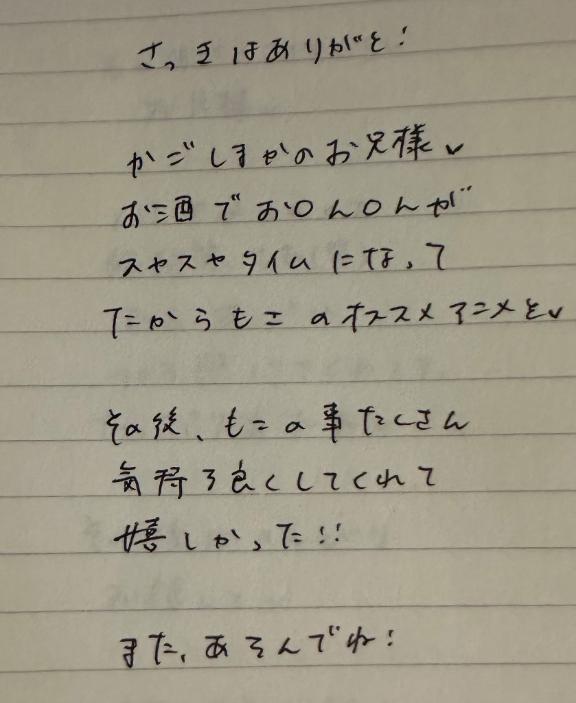 さっきはありがと!
かごしまかのお兄様✓
お酒でお〇ん〇んが
スヤスヤタイムになって
たからもこのオススメアニメを✓
その後、もこの事たくさん
気持ち良くしてくれて
嬉しかった!!
また、あそんでね!